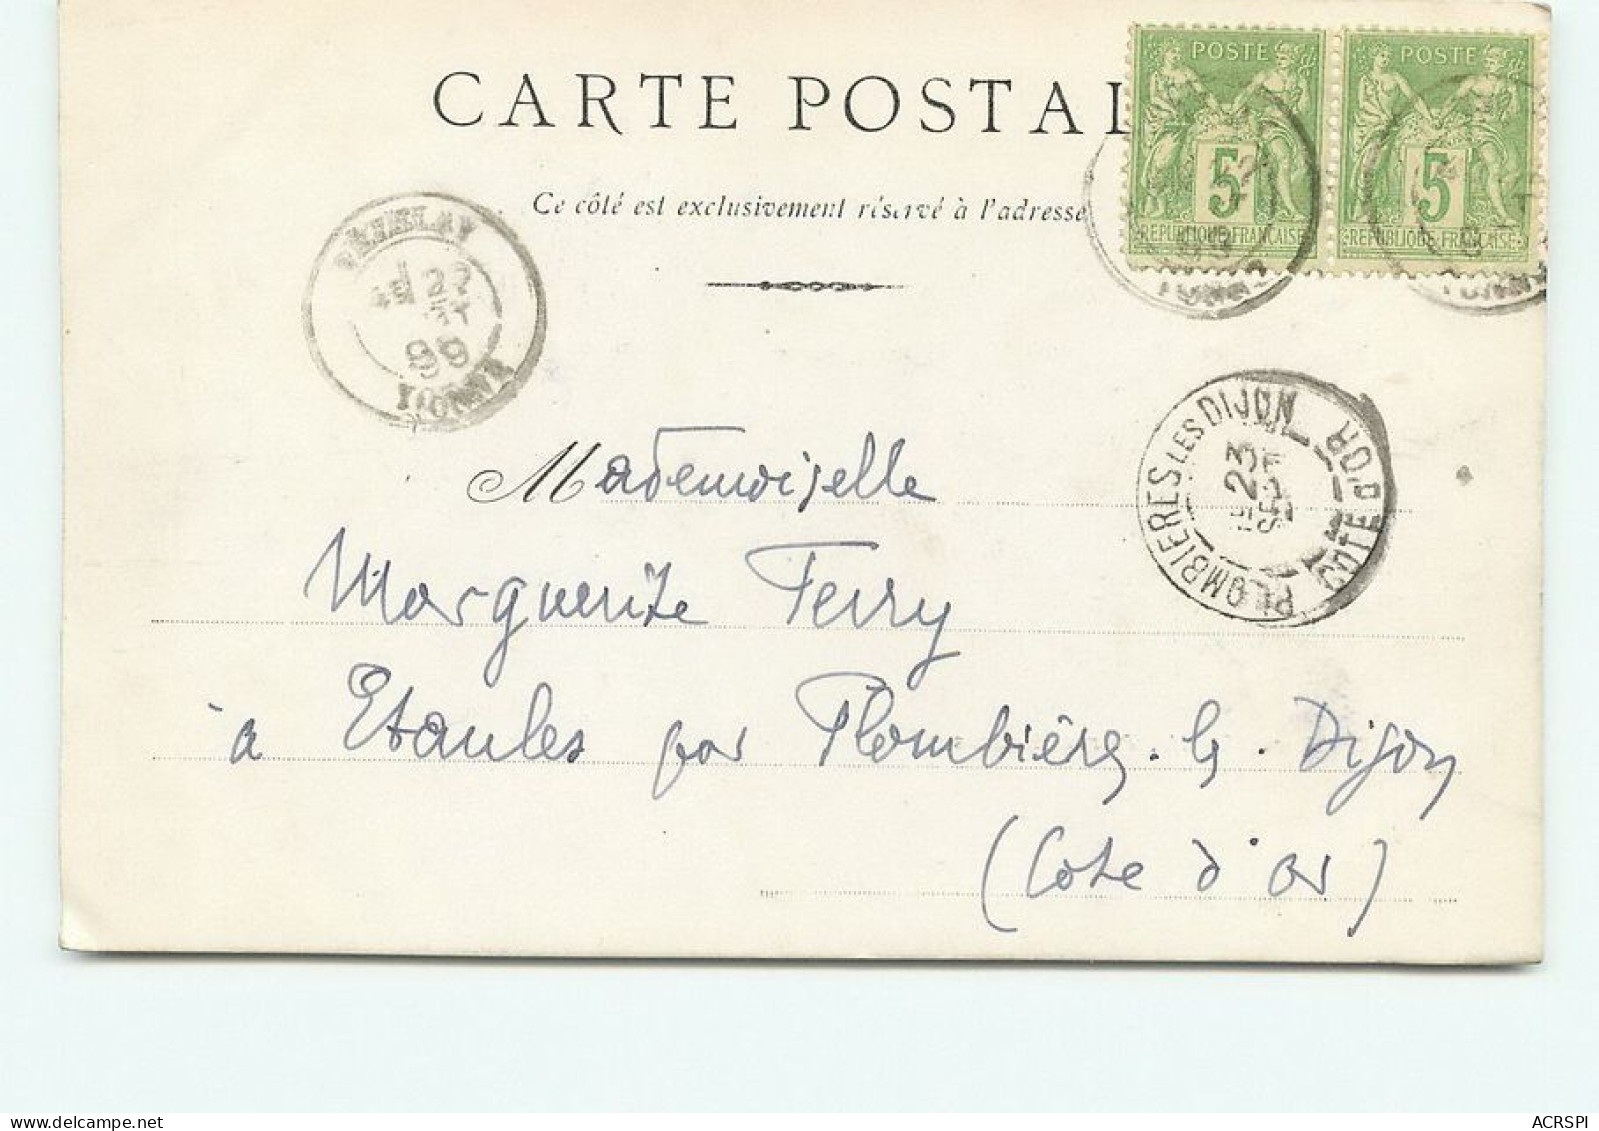 CARTE POSTAL
POSTE
5
REPUBLIQUE FRANCAISE
POSTE
5
REPUBLIQUE FRANCAISE
Ce côté est exclusivement réservé à l'adresse
22
99
YONNE
PLOMBIERES LES DIJON
23
SEPT
COTE D'OR
Mademoiselle
Marguerite Ferry
à Etaules par Plombières-ls-Dijon
(Cote d'or)
ACRSPI